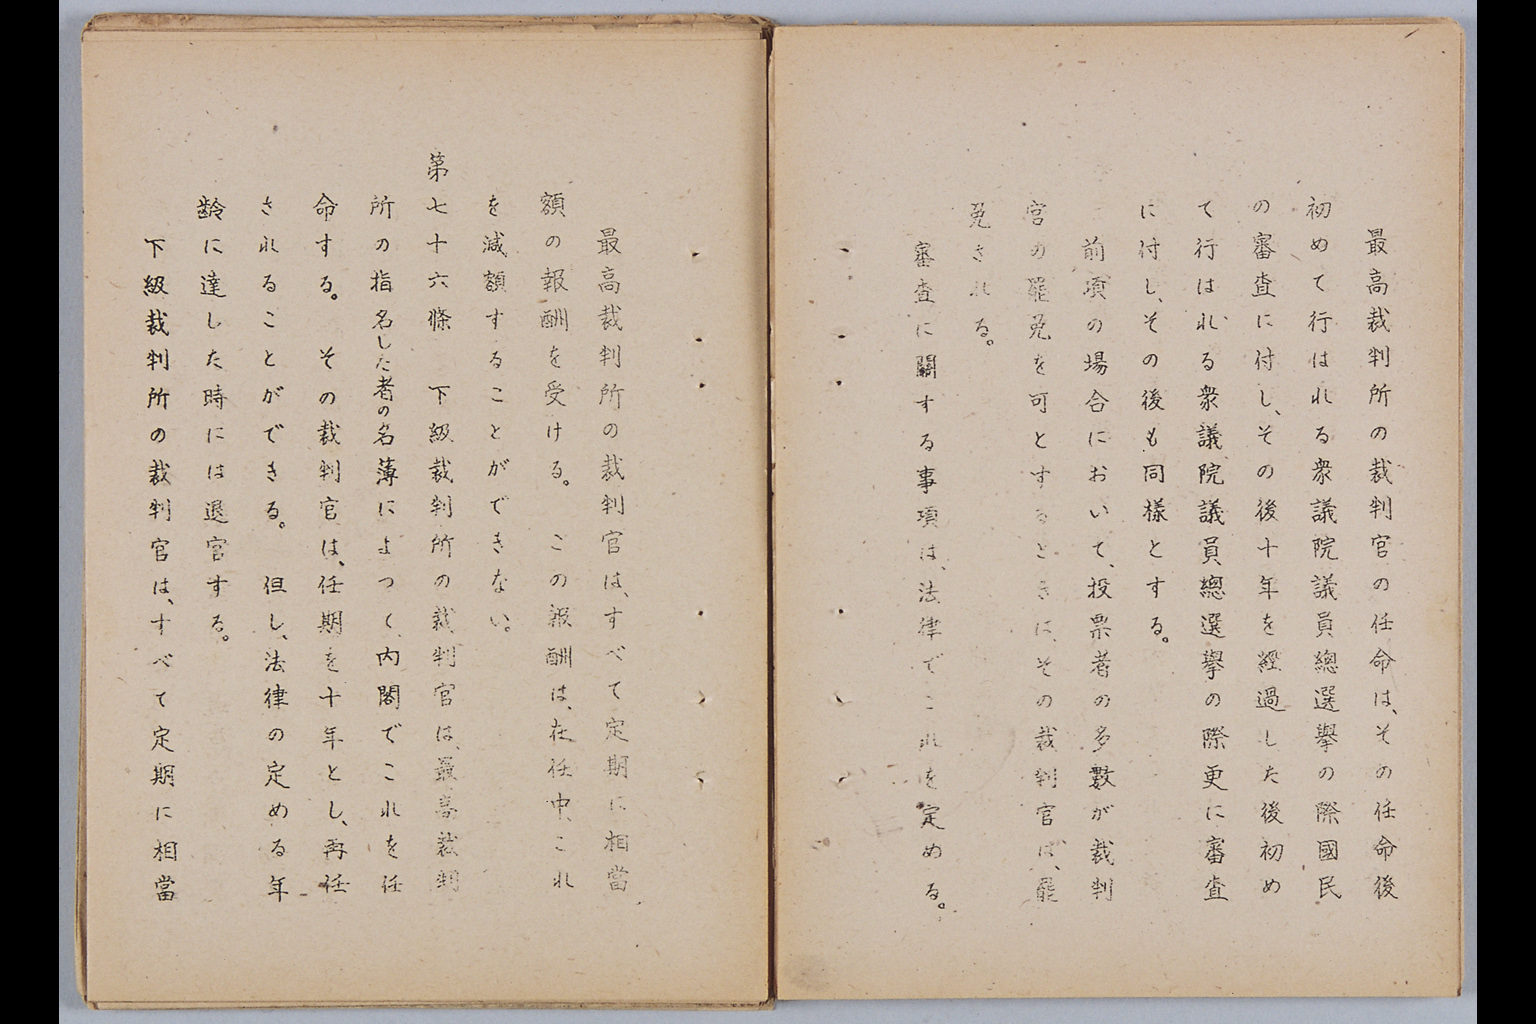 最高裁判所の裁判官の任命は、その任命後
初めて行はれる衆議院議員總選擧の際國民
の審査に付し、その後十年を經過した後初め
て行はれる衆議院議員總選擧の際更に審査
に付し、その後も同樣とする。
前項の場合において、投票者の多數が裁判
官の罷免を可とするときは、その裁判官は、罷
免される。
審査に關する事項は、法律でこれを定める。
最高裁判所の裁判官は、すべて定期に相當
額の報酬を受ける。この報酬は、在任中、これ
を減額することができない。
第七十六條　下級裁判所の裁判官は、最高裁判
所の指名した者の名薄によつて、内閣でこれを任
命する。その裁判官は、任期を十年とし、再任
されることができる。但し、法律の定める年
齡に達した時には退官する。
下級裁判所の裁判官は、すべて定期に相當